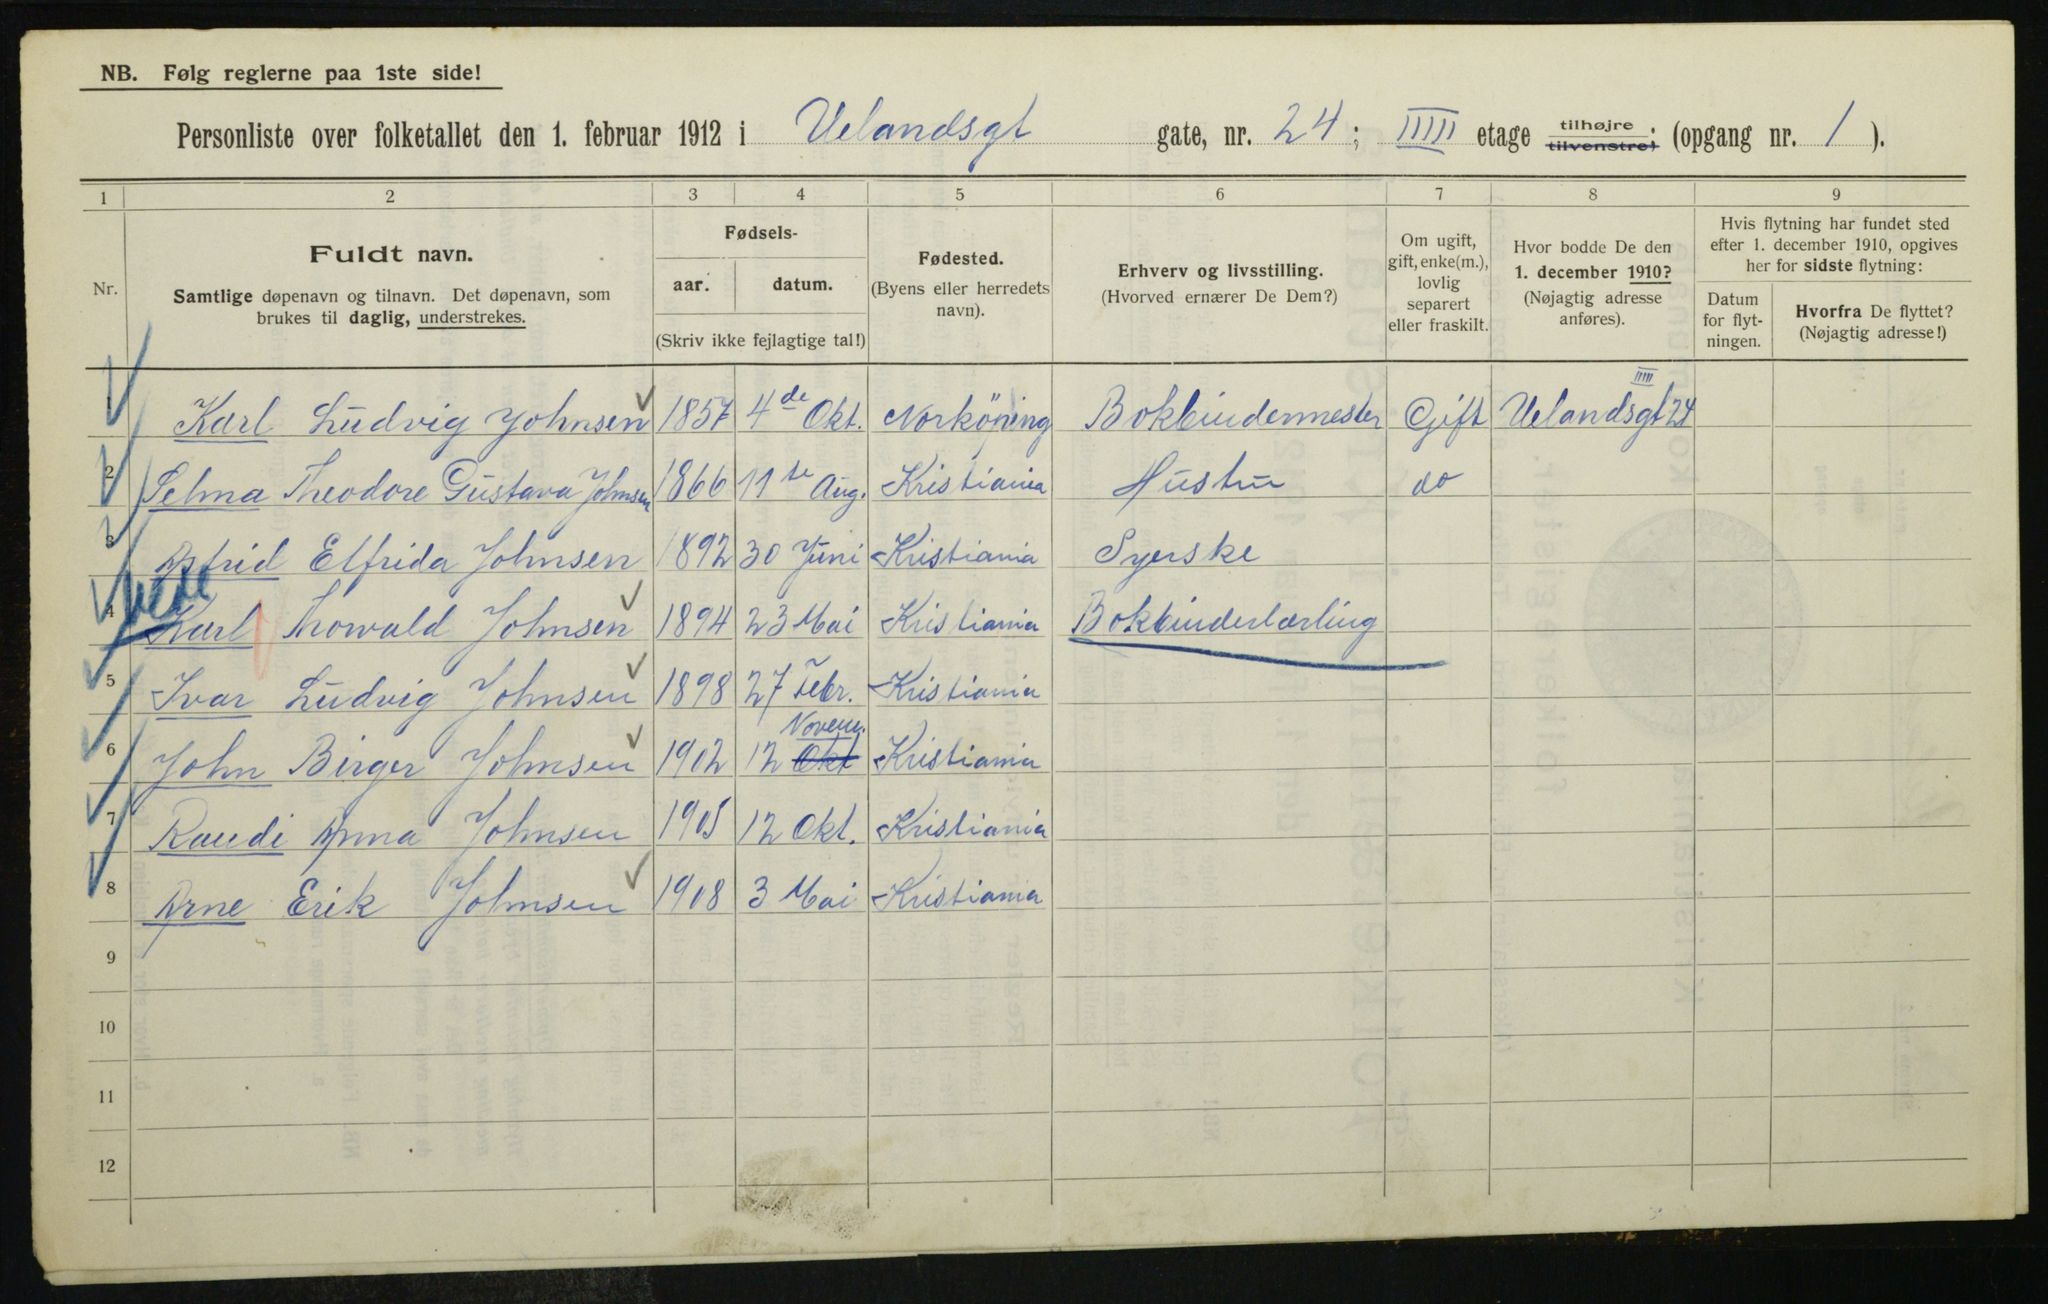 NB. Følg reglerne paa 1ste side!
Personliste over folketallet den 1. februar 1912 i Uelandsgt gate, nr. 24; IIIII etage tilhøjre tilvenstre: (opgang nr. 1).
1 2 3 4 5 6 7 8 9
Nr.
Fuldt navn.
Samtlige døpenavn og tilnavn. Det døpenavn, som
brukes til daglig, understrekes.
Fødsels-
aar. datum.
(Skriv ikke fejlagtige tal!)
Fødested.
(Byens eller herredets
navn).
Erhverv og livsstilling.
(Hvorved ernærer De Dem?)
Om ugift,
gift, enke(m.),
lovlig
separert
eller fraskilt.
Hvor bodde De den
1. december 1910?
(Nøjagtig adresse
anføres).
Hvis flytning har fundet sted
efter 1. december 1910, opgives
her for sidste flytning:
Datum
for flyt-
ningen.
Hvorfra De flyttet?
(Nøjagtig adresse!)
IIIII
1 Karl Ludvig Johnsen 1857 4de Okt. Norköping Bokbindermester Gift Uelandsgt 24
2 Selma Theodore Gustava Johnsen 1866 11te Aug. Kristiania Hustru do
3 Astrid Elfrida Johnsen 1892 30 Juni Kristiania Syerske
4 Karl Thorvald Johnsen 1894 23 Mai Kristiania Bokbinderlærling
5 Ivar Ludvig Johnsen 1898 27 Febr. Kristiania
Novem.
6 John Birger Johnsen 1902 12 Okt Kristiania
7 Randi Anna Johnsen 1905 12 Okt. Kristiania
8 Arne Erik Johnsen 1908 3 Mai Kristiania
9
10
11
12